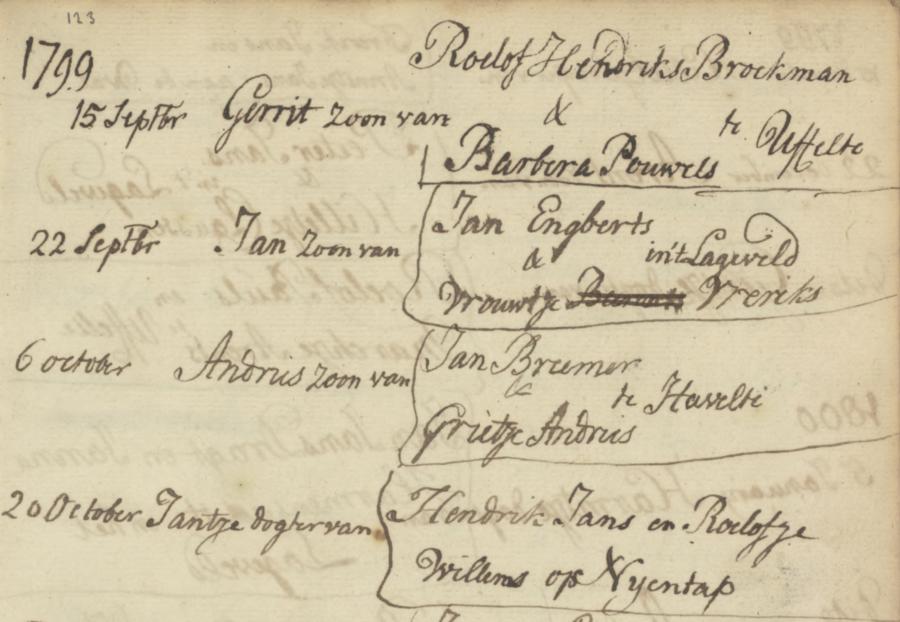 123
1799
Roelof Hendriks Brockman
15 Septbr Gerrit zoon van
&
te Uffelte
Barbera Pouwels
Jan Engberts
22 Septbr Jan zoon van
& in't Lageveld
Vrouwtje Vrericks
Jan Breemer
6 october Andries zoon van
&
te Havelte
Grietje Andries
20 October Jantje dogter van
Hendrik Jans en Roelofje
Willems op Nyentap